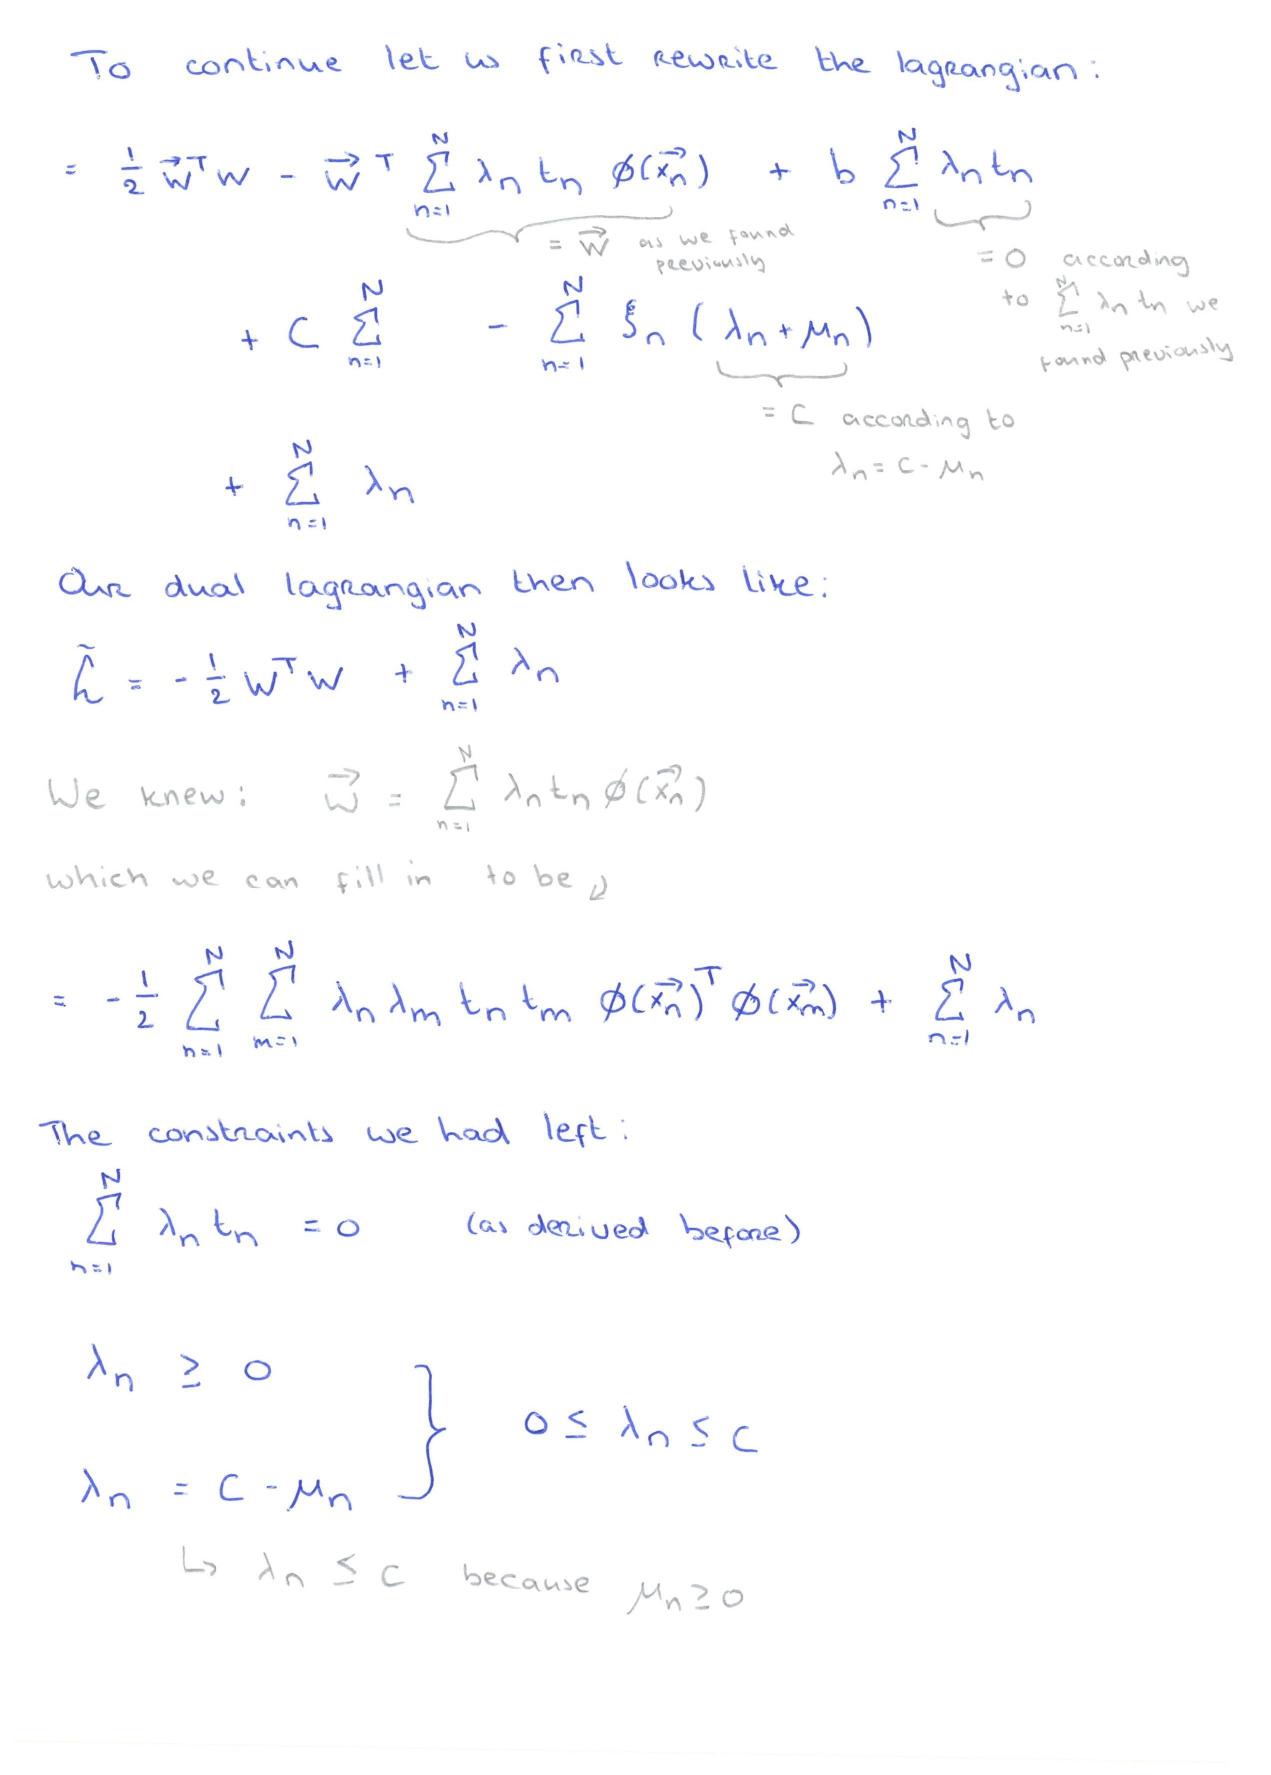 To continue let us first rewrite the lagrangian:
= 1/2 w⃗ᵀw - w⃗ᵀ Σ_{n=1}^{N} λₙ tₙ ϕ(x⃗ₙ) + b Σ_{n=1}^{N} λₙ tₙ
= w⃗ as we found
previously
= 0 according
to Σ_{n=1}^{N} λₙ tₙ we
found previously
+ C Σ_{n=1}^{N} - Σ_{n=1}^{N} ξₙ (λₙ + μₙ)
= C according to
λₙ = C - μₙ
+ Σ_{n=1}^{N} λₙ
Our dual lagrangian then looks like:
L̃ = - 1/2 wᵀw + Σ_{n=1}^{N} λₙ
We knew: w⃗ = Σ_{n=1}^{N} λₙ tₙ ϕ(x⃗ₙ)
which we can fill in to be ↓
= - 1/2 Σ_{n=1}^{N} Σ_{m=1}^{N} λₙ λₘ tₙ tₘ ϕ(x⃗ₙ)ᵀ ϕ(x⃗ₘ) + Σ_{n=1}^{N} λₙ
The constraints we had left:
Σ_{n=1}^{N} λₙ tₙ = 0 (as derived before)
λₙ ≥ 0
0 ≤ λₙ ≤ C
λₙ = C - μₙ
↳ λₙ ≤ C because μₙ ≥ 0